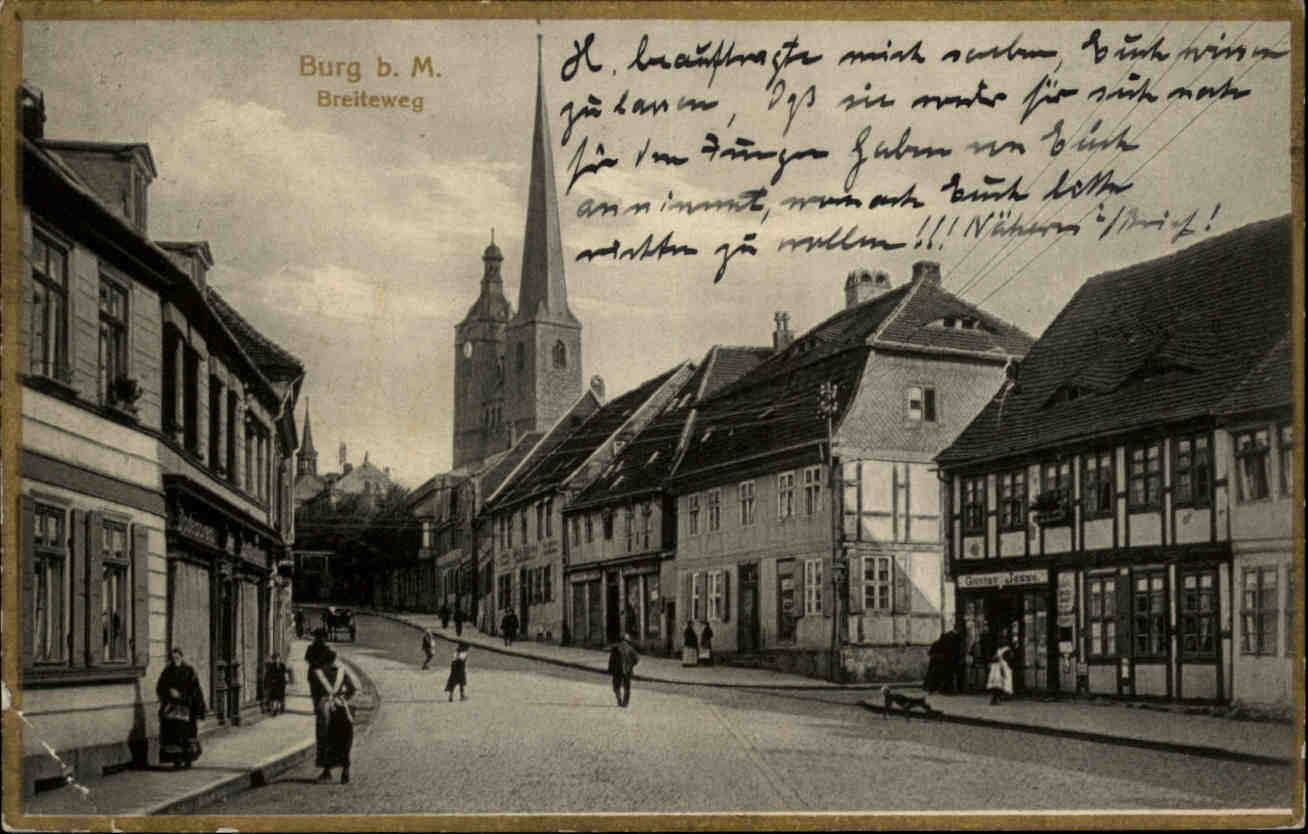 Burg b. M.
Breiteweg
H. beauftragte mich soeben, Euch wissen
zu lassen, daß sie weder für sich noch
für den Jungen Gaben von Euch
annimmt, wonach Euch bitte
richten zu wollen!!! Näheres i/Brief!
Gustav Jesse